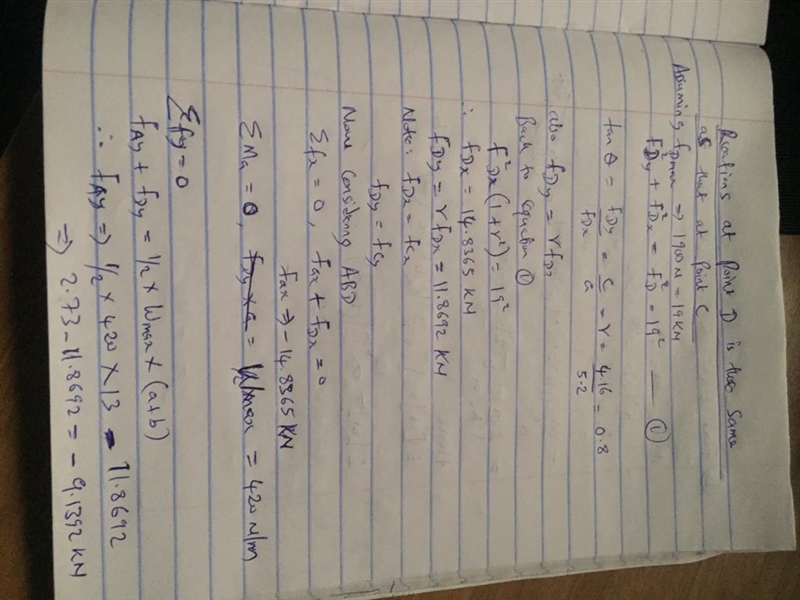 Reactions at point D is the same
as that at point C
Assuming fDmax ⇒ 1900N = 19KN
f²Dy + f²Dx = f²D = 19² — ①
tan θ = fDy/fDx = c/a = r = 4.16/5.2 = 0.8
also fDy = rfDx
Back to equation ①
f²Dx(1+r²) = 19²
∴ fDx = 14.8365 KN
fDy = rfDx = 11.8692 KN
Note: fDx = fCx
fDy = fCy
Now Considering ABD
Σfx = 0, fax + fDx = 0
fax ⇒ -14.8365 KN
ΣMa = 0, = Wmax = 420 N/m
Σfy = 0
fAy + fDy = 1/2 × Wmax × (a+b)
∴ fAy ⇒ 1/2 × 420 × 13 - 11.8692
⇒ 2.73 - 11.8692 = -9.1392 KN